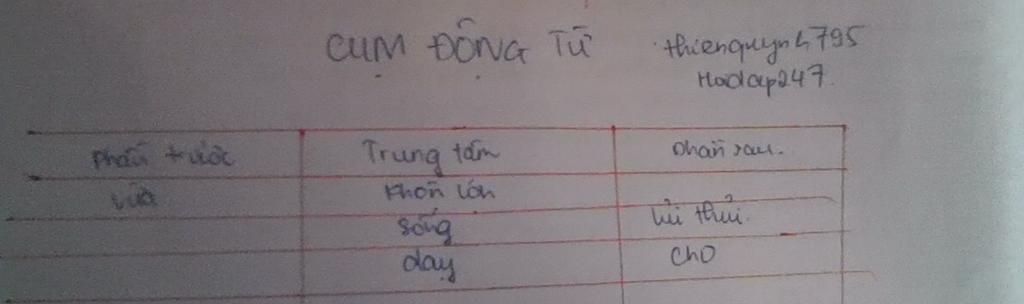 CỤM ĐỘNG TỪ
thienquynh795
Hoidap247.
Phần trước Trung tâm Phần sau.
vừa khôn lớn
sống lủi thủi.
dạy cho